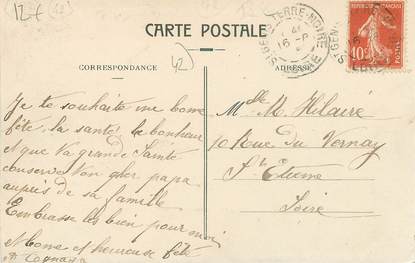 12f (12)
CARTE POSTALE
12
CORRESPONDANCE
ADRESSE
TERRE-NOIRE
16-8
LOIRE
10
Je te souhaite une bonne
fête, la santé, le bonheur
et que ta grande Sainte
conserve ton cher papa
auprès de sa famille
Embrasse les bien pour moi
Bonne et heureuse fête
Melle M. Hilaire
10 Rue du Vernay
St Etienne
Loire